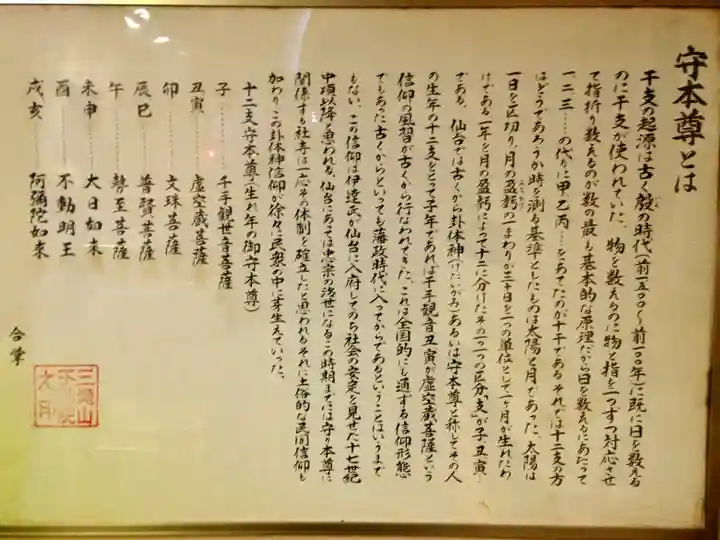 守本尊とは
干支の起源は古く殷の時代(前一五〇〇～前一一〇〇年)に既に日を数える
のに干支が使われていた。物を数えるのに物と指を一つずつ対応させ
て指折り数えるのが数の最も基本的な原理だから日を数えるにあたって
一二三……の代りに甲乙丙……をあてたのが十干であるそれでは十二支の方
はどうであろうか時を測る基準としたものは太陽と月であった。太陽は
一日を区切り、月の盈虧の一まわりが三十日を一つの単位として一ヶ月が生れたわ
けである一年を月の盈虧によって十二に分けたその一つ一つの区分「支」が子丑寅…
である。仙台では古くから卦体神(けたいがみ)あるいは守本尊と称してその人
の生年の十二支をとって子年であれば千手観音丑寅が虚空蔵菩薩という
信仰の風習が古くから行われてきた。これは全国的にも通ずる信仰形態
でもあった古くからといっても藩政時代に入ってからであるということはいうまで
もない。この信仰は伊達氏が仙台に入府してのち社会の安定を見せた十七世紀
中頃以降と思われる。仙台にあっては忠宗の治世になるこの時期までには守り本尊に
関係する社寺は一応その体制を確立したと思われるそれに土俗的な民間信仰も
加わりこの卦体神信仰が徐々に民衆の中に芽生えていった。
十二支守本尊(生れ年の御守本尊)
子………千手観世音菩薩
丑寅………虚空蔵菩薩
卯………文珠菩薩
辰巳………普賢菩薩
午………勢至菩薩
未申………大日如来
酉………不動明王
戌亥………阿彌陀如来
合掌